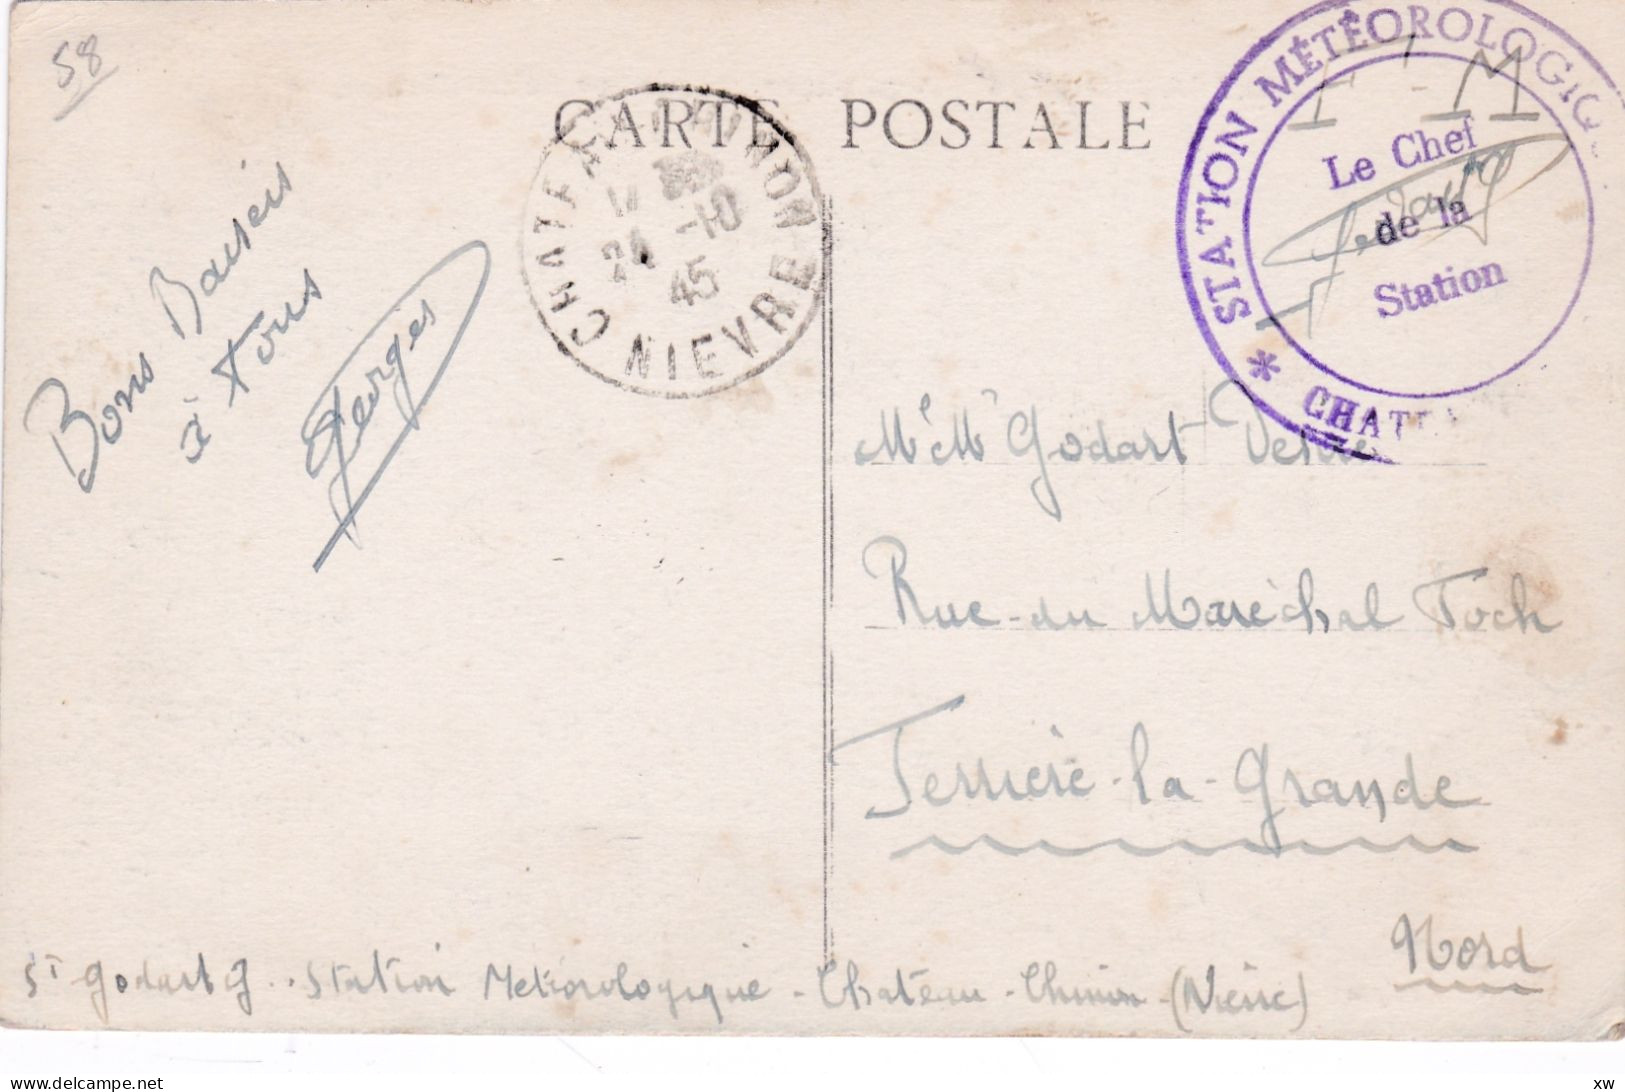 58
CARTE POSTALE
CHATEAU CHINON
24 -10
45
NIEVRE
STATION MÉTÉOROLOGIQU
F M
Le Chef
de la
Station
* CHATEA
Bons Baisers
à tous
Georges
Mr Mme Godart
Rue du Maréchal Foch
Ferrière-la-Grande
Nord
St Godart G. Station Météorologique - Château-Chinon - (Nièvre)
www.delcampe.net
xw